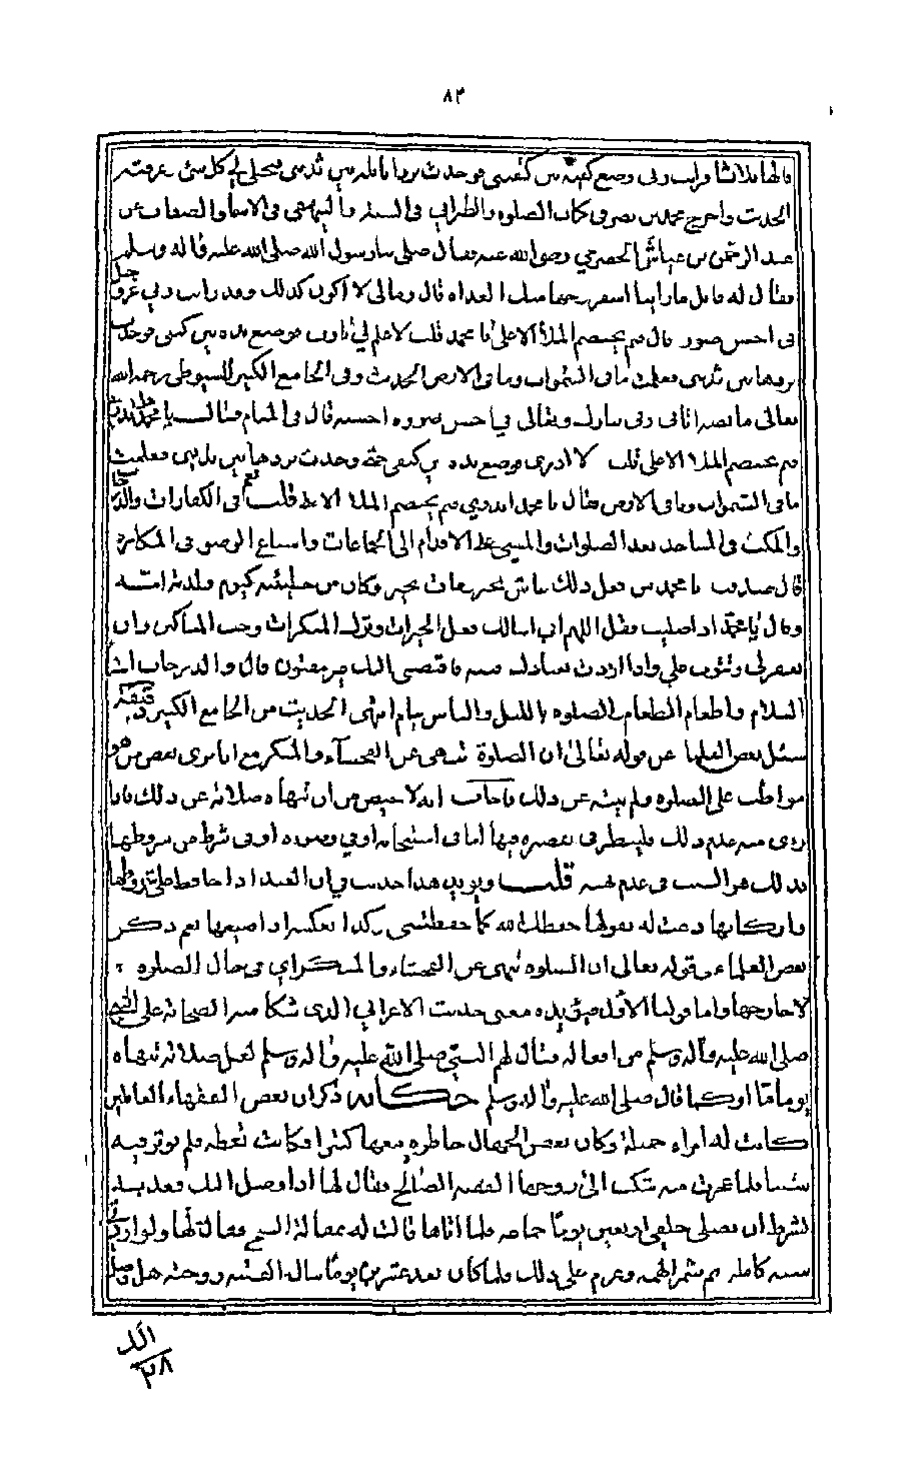 ٨٣
قالها ثلاثا ورايت ربي وضع كفه بين كتفي فوجدت برد انامله بين ثديي فتجلى لي كل شئ وعرفته
الحديث واخرج محمد بن نصر في كتاب الصلوه والطبراني في السنه والبيهقي في الاسما والصفات عن
عبد الرحمن بن عياش الحضرمي رضي الله عنه قال صلى بنا رسول الله صلى الله عليه واله وسلم
فقال له قايل ما راينا اسفر وجها منك الغداه قال ومالي لا اكون كذلك وقد رايت ربي عز وجل
في احسن صوره قال فيم يختصم الملأ الاعلى يا محمد قلت لا علم لي يا رب فوضع يده بين كتفي فوجدت
بردها بين ثديي فعلمت ما في السموات وما في الارض الحديث وفي الجامع الكبير للسيوطي رحمه الله
تعالى ما نصه اتاني ربي تبارك وتعالى في احسن صوره احسبه قال في المنام فقال يا محمد
فيم يختصم الملا الاعلى قلت لا ادري فوضع يده بين كتفي حتى وجدت بردها بين ثديي فعلمت
ما في السموات وما في الارض فقال يا محمد اتدري فيم يختصم الملا الاعلى قلت نعم في الكفارات والدرجات
والمكث في المساجد بعد الصلوات والمشي على الاقدام الى الجماعات واسباغ الوضوء في المكاره
قال صدقت يا محمد من فعل ذلك عاش بخير ومات بخير وكان من خطيئته كيوم ولدته امه
وقال يا محمد اذا صليت فقل اللهم اني اسالك فعل الخيرات وترك المنكرات وحب المساكين وان
تغفر لي وتتوب علي واذا اردت بعبادك فتنه فاقبضني اليك غير مفتون قال والدرجات افشا
السلام واطعام الطعام والصلوه بالليل والناس نيام انتهى الحديث من الجامع الكبير دقيقة
سئل بعض العلما عن قوله تعالى ان الصلوة تنهى عن الفحشآء والمنكر مع انا نرى بعض من هو
مواظب على الصلوه ولم تنهه عن ذلك فاجاب انه لا محيص من ان تنهاه صلاته عن ذلك فاذا
رؤي منه عدم ذلك فلينظر في تقصيره فيها اما في استنجائه او في وضوءه او في شرط من شروطها
فذلك هو السبب في عدم نهيه قلت ويؤيد هذا حديث في ان العبد اذا حافظ على شروطها
واركانها دعت له بقولها حفظك الله كما حفظتني وكذا بعكسه اذا ضيعها نعم ذكر
بعض العلماء في قوله تعالى ان الصلوه تنهى عن الفحشاء والمنكر اي في حال الصلوه
لا خارجها واما قولنا الاول فيؤيده معنى حديث الاعرابي الذي شكا الصحابة على النبي
صلى الله عليه واله وسلم من افعاله فقال لهم النبي صلى الله عليه واله وسلم لعل صلاته تنهاه
يوما ما او كما قال صلى الله عليه واله وسلم حكايه ذكر ان بعض الفقهاء العالمين
كانت له امراه جميلة وكان بعض الجهال خاطره معها كثيرا فكانت تعظه فلم يوثر فيه
شيئا فلما عرفت منه شكت الى زوجها الفقيه الصالح فقال لها اذا وصل اليك فعديه
بشرط ان يصلي خلفي اربعين يوما فلما اتاها قالت له مقالة الشيخ فقال لها ولو اردتي
سنه كامله ثم شمر الهمه وعزم على ذلك فلما كان بعد عشرين يوما سال الفقيه زوجته هل وصل
٢٨